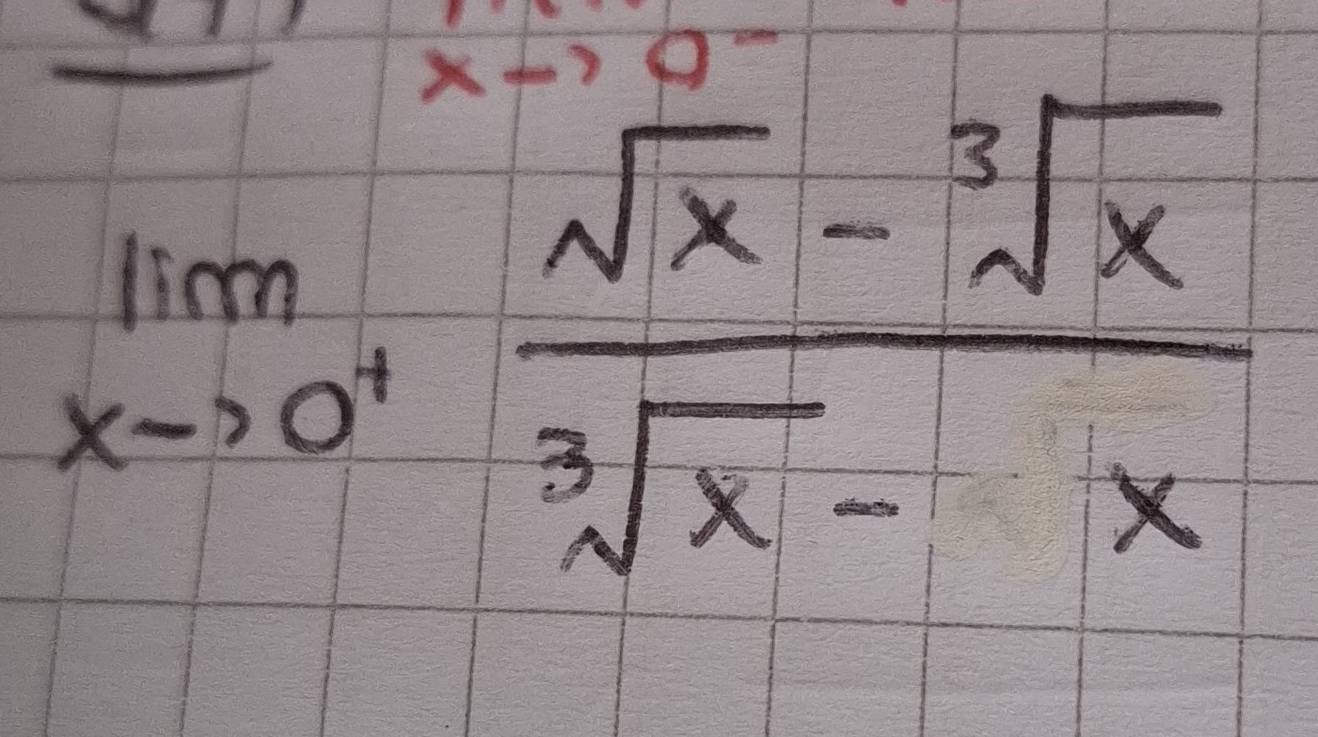 x -> 0⁻
lim x -> 0⁺ (√x - ³√x) / (³√x - x)